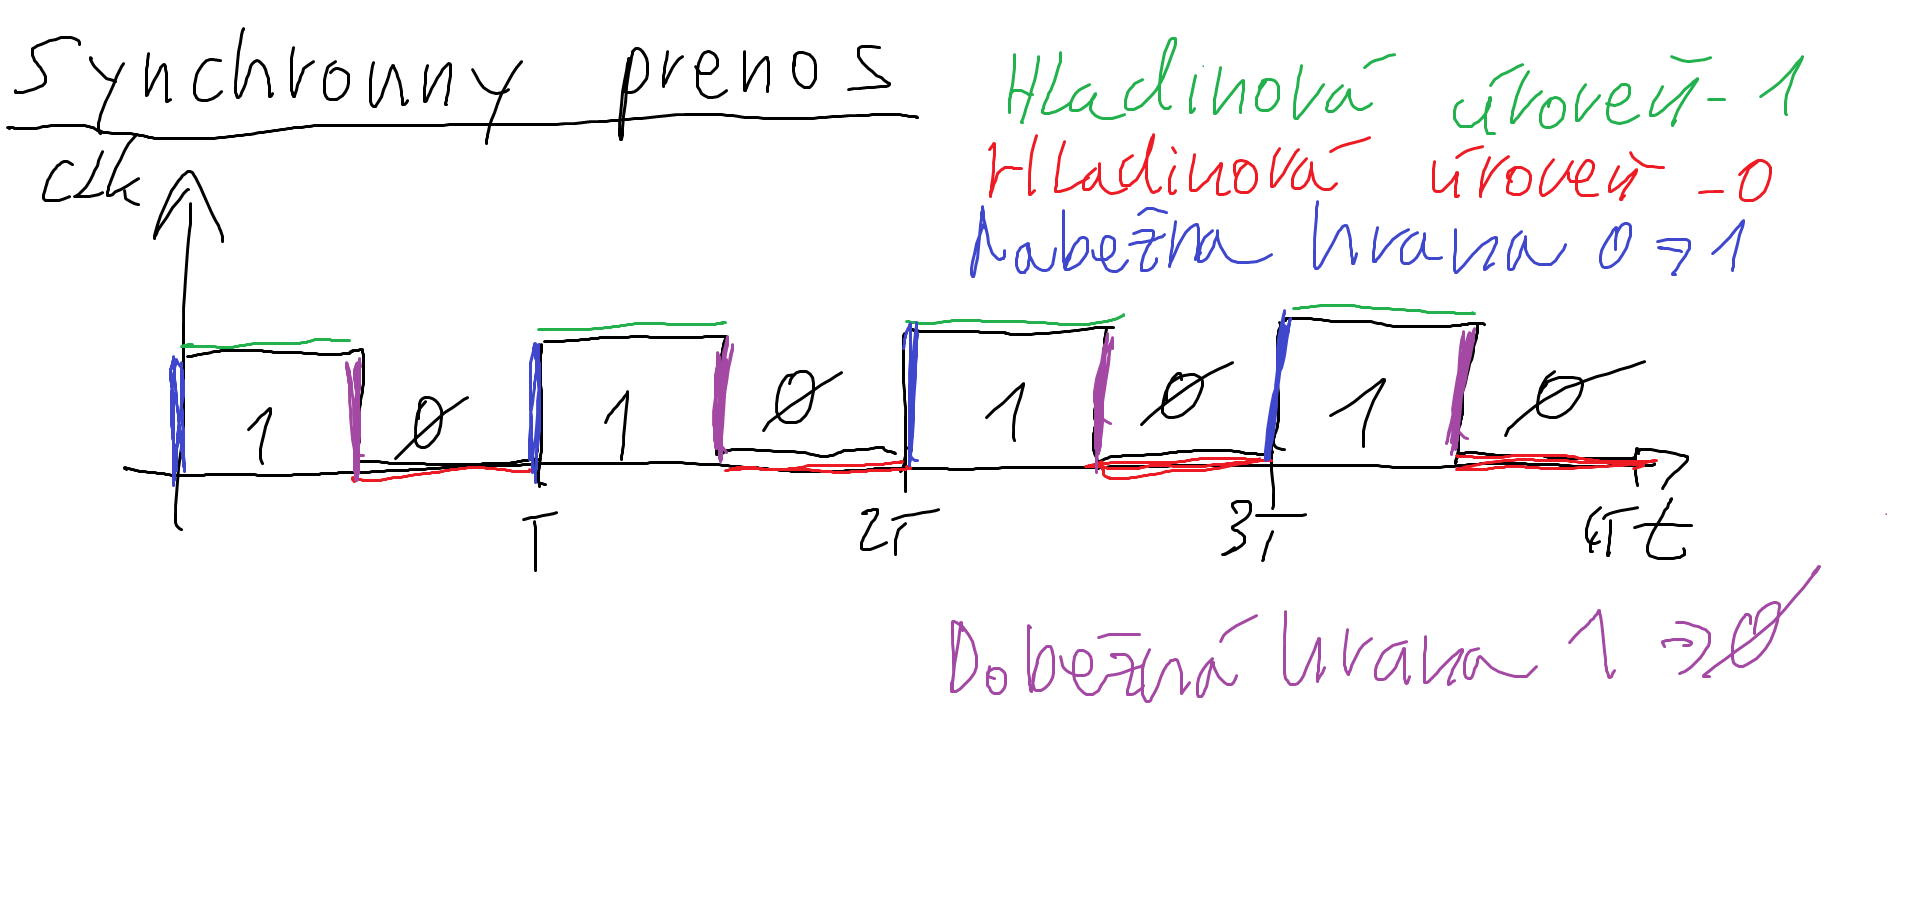 Synchronny prenos
Hladinová úroveň - 1
Hladinová úroveň - 0
Nabežna hrana 0 → 1
Clk
1 0 1 0 1 0 1 0
T 2T 3T 4T t
Dobežná hrana 1 → 0